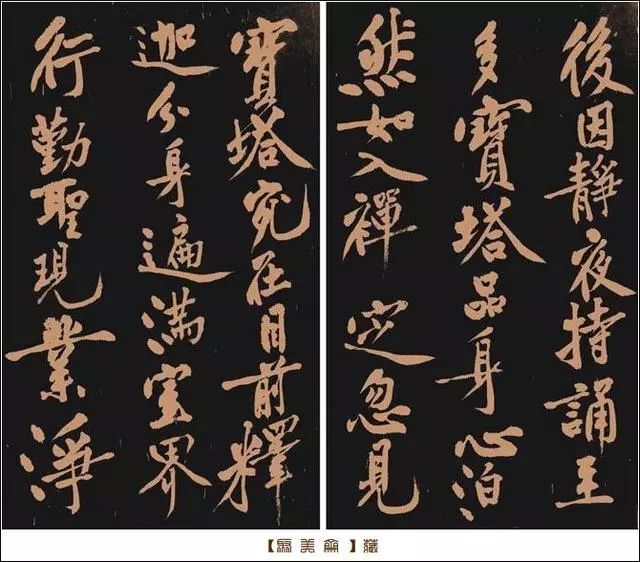 後因靜夜持誦至
多寶塔品身心泊
然如入禪定忽見
寶塔宛在目前釋
迦分身遍滿空界
行勤聖現業淨
【美】藏